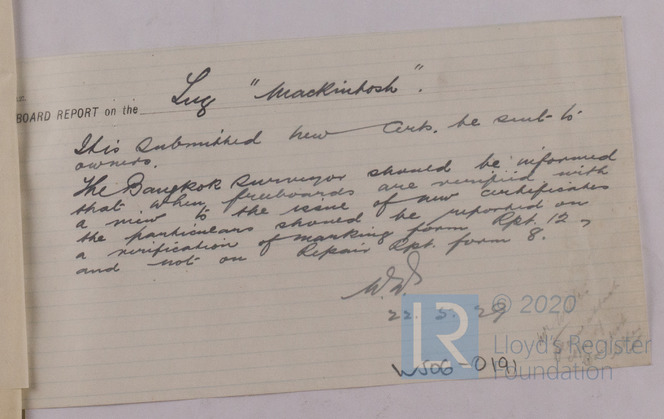 BOARD REPORT on the Lug "Mackintosh".
It is submitted new certs. be sent to
owners.
The Bangkok Surveyor should be informed
that when freeboards are verified with
a view to the issue of new certificates
the particulars should be reported on
a verification of marking form Rpt. 12,
and not on Repair Rpt. form 8.
22. 5. 29
© 2020
LR
Lloyd's Register
Foundation
WS06-0191